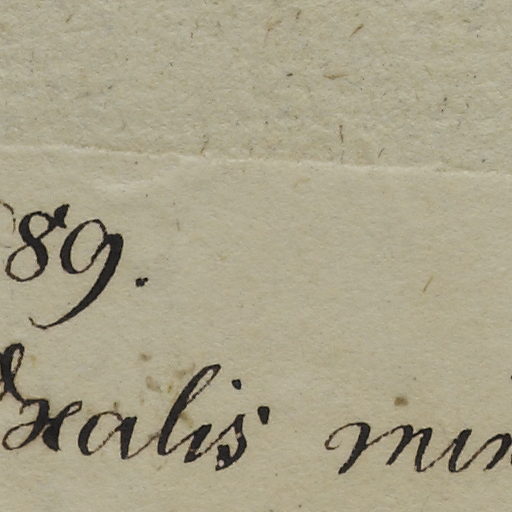 89.
Oxalis min